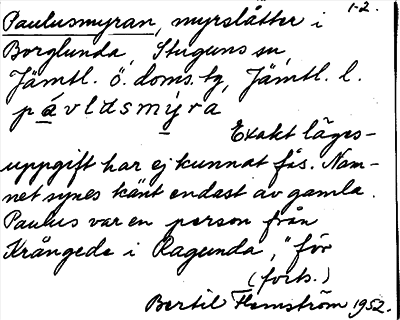 1-2.
Paulusmyran, myrslåtter i
Borglunda, Stuguns sn,
Jämtl. ö. doms. tg, Jämtl. l.
pávldsmýra
Exakt läges-
uppgift har ej kunnat fås. Nam-
net synes känt endast av gamla.
Paulus var en person från
Krångede i Ragunda, "för
(forts.)
Bertil Flemström 1952.